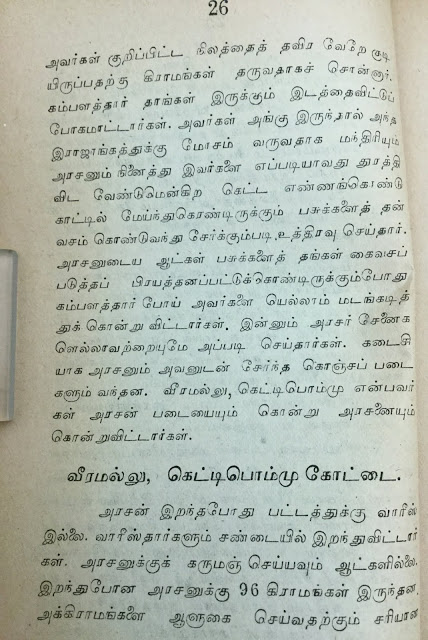 26
அவர்கள் குறிப்பிட்ட நிலத்தைத் தவிர வேறே குடி
யிருப்பதற்கு கிராமங்கள் தருவதாகச் சொன்னார்.
கம்பளத்தார் தாங்கள் இருக்கும் இடத்தைவிட்டுப்
போகமாட்டார்கள். அவர்கள் அங்கு இருந்தால் அந்த
இராஜாங்கத்துக்கு மோசம் வருவதாக மந்திரியும்
அரசனும் நினைத்து இவர்களை எப்படியாவது துரத்தி
விட வேண்டுமென்கிற கெட்ட எண்ணங்கொண்டு
காட்டில் மேய்ந்துகொண்டிருக்கும் பசுக்களைத் தன்
வசம் கொண்டுவந்து சேர்க்கும்படி உத்திரவு செய்தார்.
அரசனுடைய ஆட்கள் பசுக்களைத் தங்கள் கைவசப்
படுத்தப் பிரயத்தனப்பட்டுக்கொண்டிருக்கும்போது
கம்பளத்தார் போய் அவர்களை யெல்லாம் மடங்கடித்
துக் கொன்று விட்டார்கள். இன்னும் அரசர் சேனை
ளெல்லாவற்றையுமே அப்படி செய்தார்கள். கடைசி
யாக அரசனும் அவனுடன் சேர்ந்த கொஞ்சப் படை
களும் வந்தன. வீரமல்லு, கெட்டிபொம்மு என்பவர்
கள் அரசன் படையையும் கொன்று அரசனையும்
கொன்றுவிட்டார்கள்.
வீரமல்லு, கெட்டிபொம்மு கோட்டை.
அரசன் இறந்தபோது பட்டத்துக்கு வாரிஸ்
இல்லை. வாரீஸ்தார்களும் சண்டையில் இறந்துவிட்டார்
கள். அரசனுக்குக் கருமஞ் செய்யவும் ஆட்களில்லை.
இறந்துபோன அரசனுக்கு 96 கிராமங்கள் இருந்தன.
அக்கிராமங்களை ஆளுகை செய்வதற்கும் சரியான